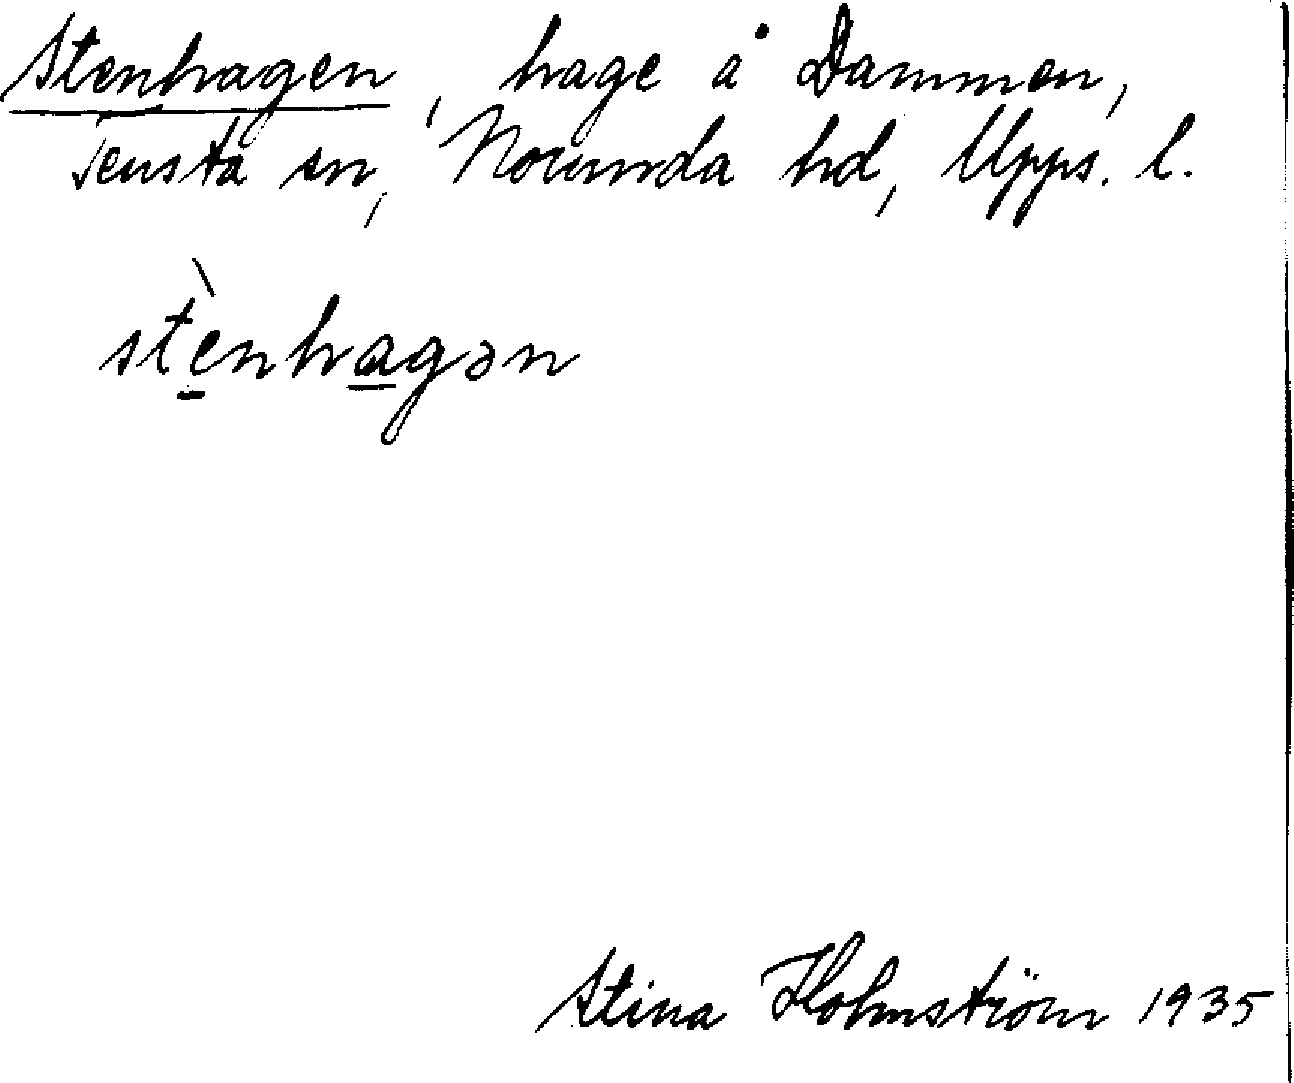 Stenhagen, hage å Dammen,
Tensta sn, Norunda hd, Upps. l.
stè̱nha̱gən
Stina Holmström 1935